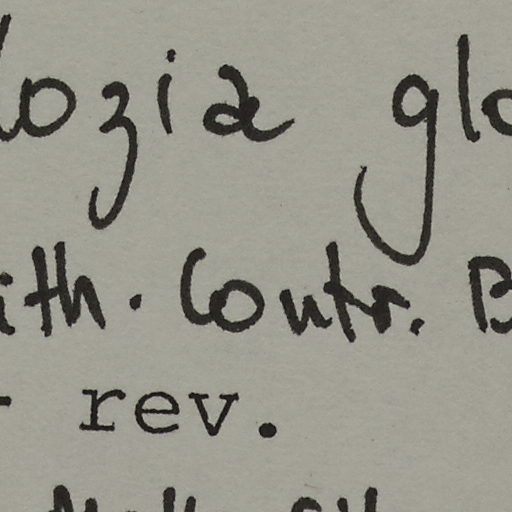 lozia glo
ith. Contr. B
- rev.